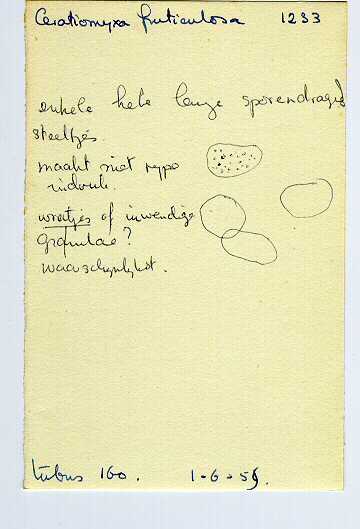 Ceratiomyxa fruticulosa 1233
enkele hele lange sporendragend
steeltjes.
maakt niet rypo
indruk.
wratjes of inwendige
granulae?
tubus 160. 1-6-